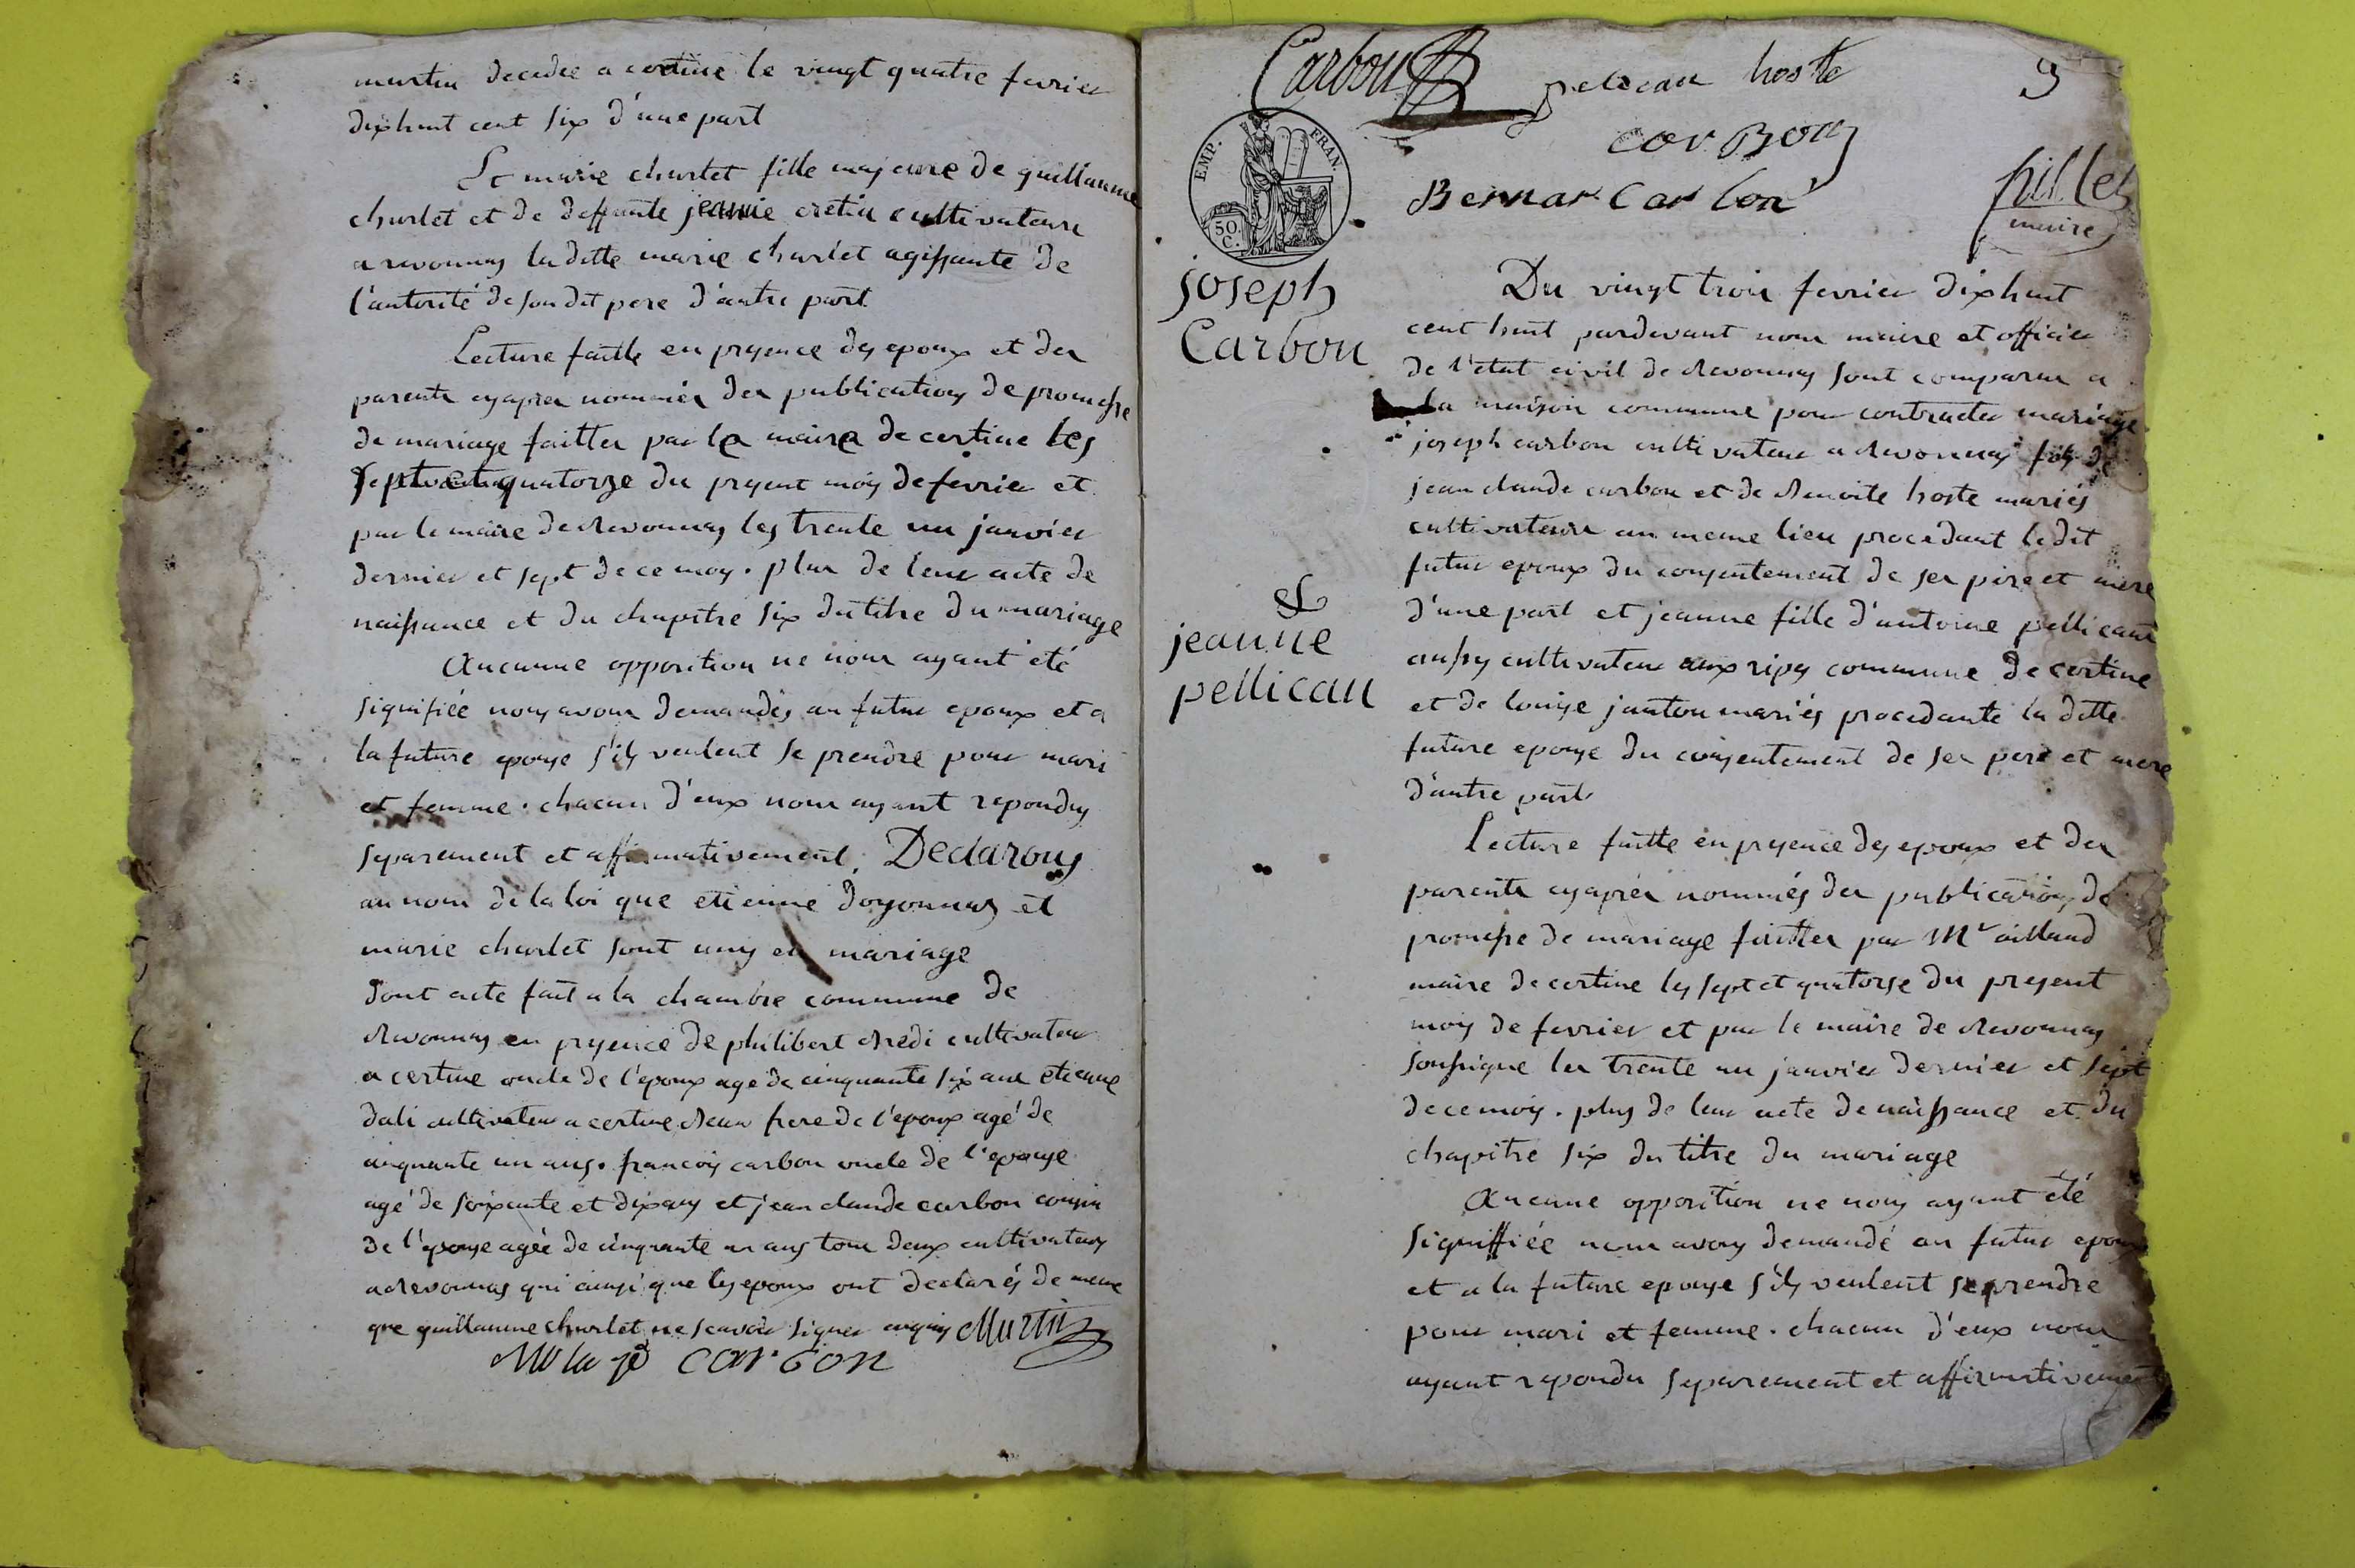 martin decedée a certine le vingt quatre fevrier
dixhuit cent six d'une part
Et marie charlet fille majeure de guillaume
charlet et de deffunte jeanne cretin cultivateurs
a revonnas laditte marie charlet agissante de
l'autorité de son dit pere d'autre part
Lecture faitte en presence des epoux et des
parents cyaprès nommés des publications de promesse
de mariage faittes par le maire de certine les
sept et quatorze du present mois de fevrier et
par le maire de Revonnas les trente un janvier
dernier et sept de ce mois. plus de leur acte de
naissance et du chapitre six du titre du mariage
Aucunne opposition ne nous ayant été
signifiée nous avons demandés au futur epoux et a
la future epouse s'ils veulent se prendre pour mari
et femme. chacun d'eux nous ayant repondus
separement et affirmativement. Declarons
au nom de la loi que etienne doyonnas et
marie charlet sont unis en mariage
dont acte fait a la chambre commune de
Revonnas en presence de philibert cultivateur
a certine oncle de l'epoux agé de cinquante six ans etienne
dali cultivateur a certine beau frere de l'epoux agé de
cinquante un ans. francois carbon oncle de l'epouse
agé de soixante et dix ans et jean claude carbon cousin
de l'epouse agée de cinquante un ans tous deux cultivateurs
a Revonnas qui ainsi que les epoux ont declarés de meme
que guillaume charlet ne scavoir signer Martin
carbon
Carbon pelican hoste 9
EMP. FRAN.
50 C.
carBon
Bernar Carbon
pillet
maire
joseph
Carbon
&
jeanne
pellican
Du vingt trois fevrier dixhuit
cent huit pardevant nous maire et officier
de l'etat civil de Revonnas sont comparus a
la maison commune pour contracter mariage
joseph carbon cultivateur a Revonnas fils de
jean claude carbon et de Benoite hoste mariés
cultivateurs au meme lieu procedant ledit
futur epoux du consentement de ses pere et mere
d'une part et jeanne fille d'antoine pellican
aussy cultivateur aux ripes commune de certine
et de louise janton mariés procedante la ditte
future epouse du consentement de ses pere et mere
d'autre part
Lecture faitte en presence des epoux et des
parents cyaprès nommés des publications de
promesse de mariage faittes par Mr aillaud
maire de certine les sept et quatorse du present
mois de fevrier et par le maire de Revonnas
soussigne les trente un janvier dernier et sept
de ce mois. plus de leur acte de naissance et du
chapitre six du titre du mariage
Aucune opposition ne nous ayant été
signiffiée nous avons demandé au futur epoux
et a la future epouse s'ils veulent se prendre
pour mari et femme. chacun d'eux nous
ayant repondu separement et affirmativement